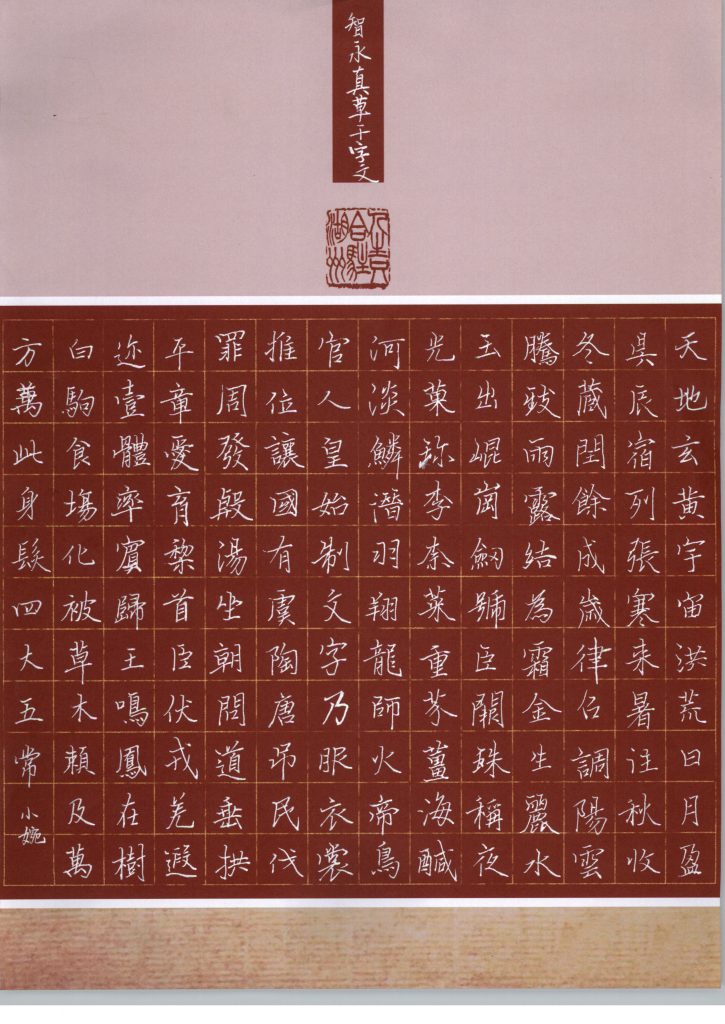 智永真草千字文
天地玄黄宇宙洪荒日月盈
昃辰宿列張寒来暑往秋收
冬藏閏餘成歲律召調陽雲
騰致雨露結為霜金生麗水
玉出崐崗劒號巨闕珠稱夜
光菓珎李柰菜重芥薑海醎
河淡鱗潛羽翔龍師火帝鳥
官人皇始制文字乃服衣裳
推位讓國有虞陶唐吊民伐
罪周發殷湯坐朝問道垂拱
平章愛育黎首臣伏戎羌遐
迩壹體率賓歸王鳴鳳在樹
白駒食場化被草木賴及萬
方萬此身髮四大五常
小婉